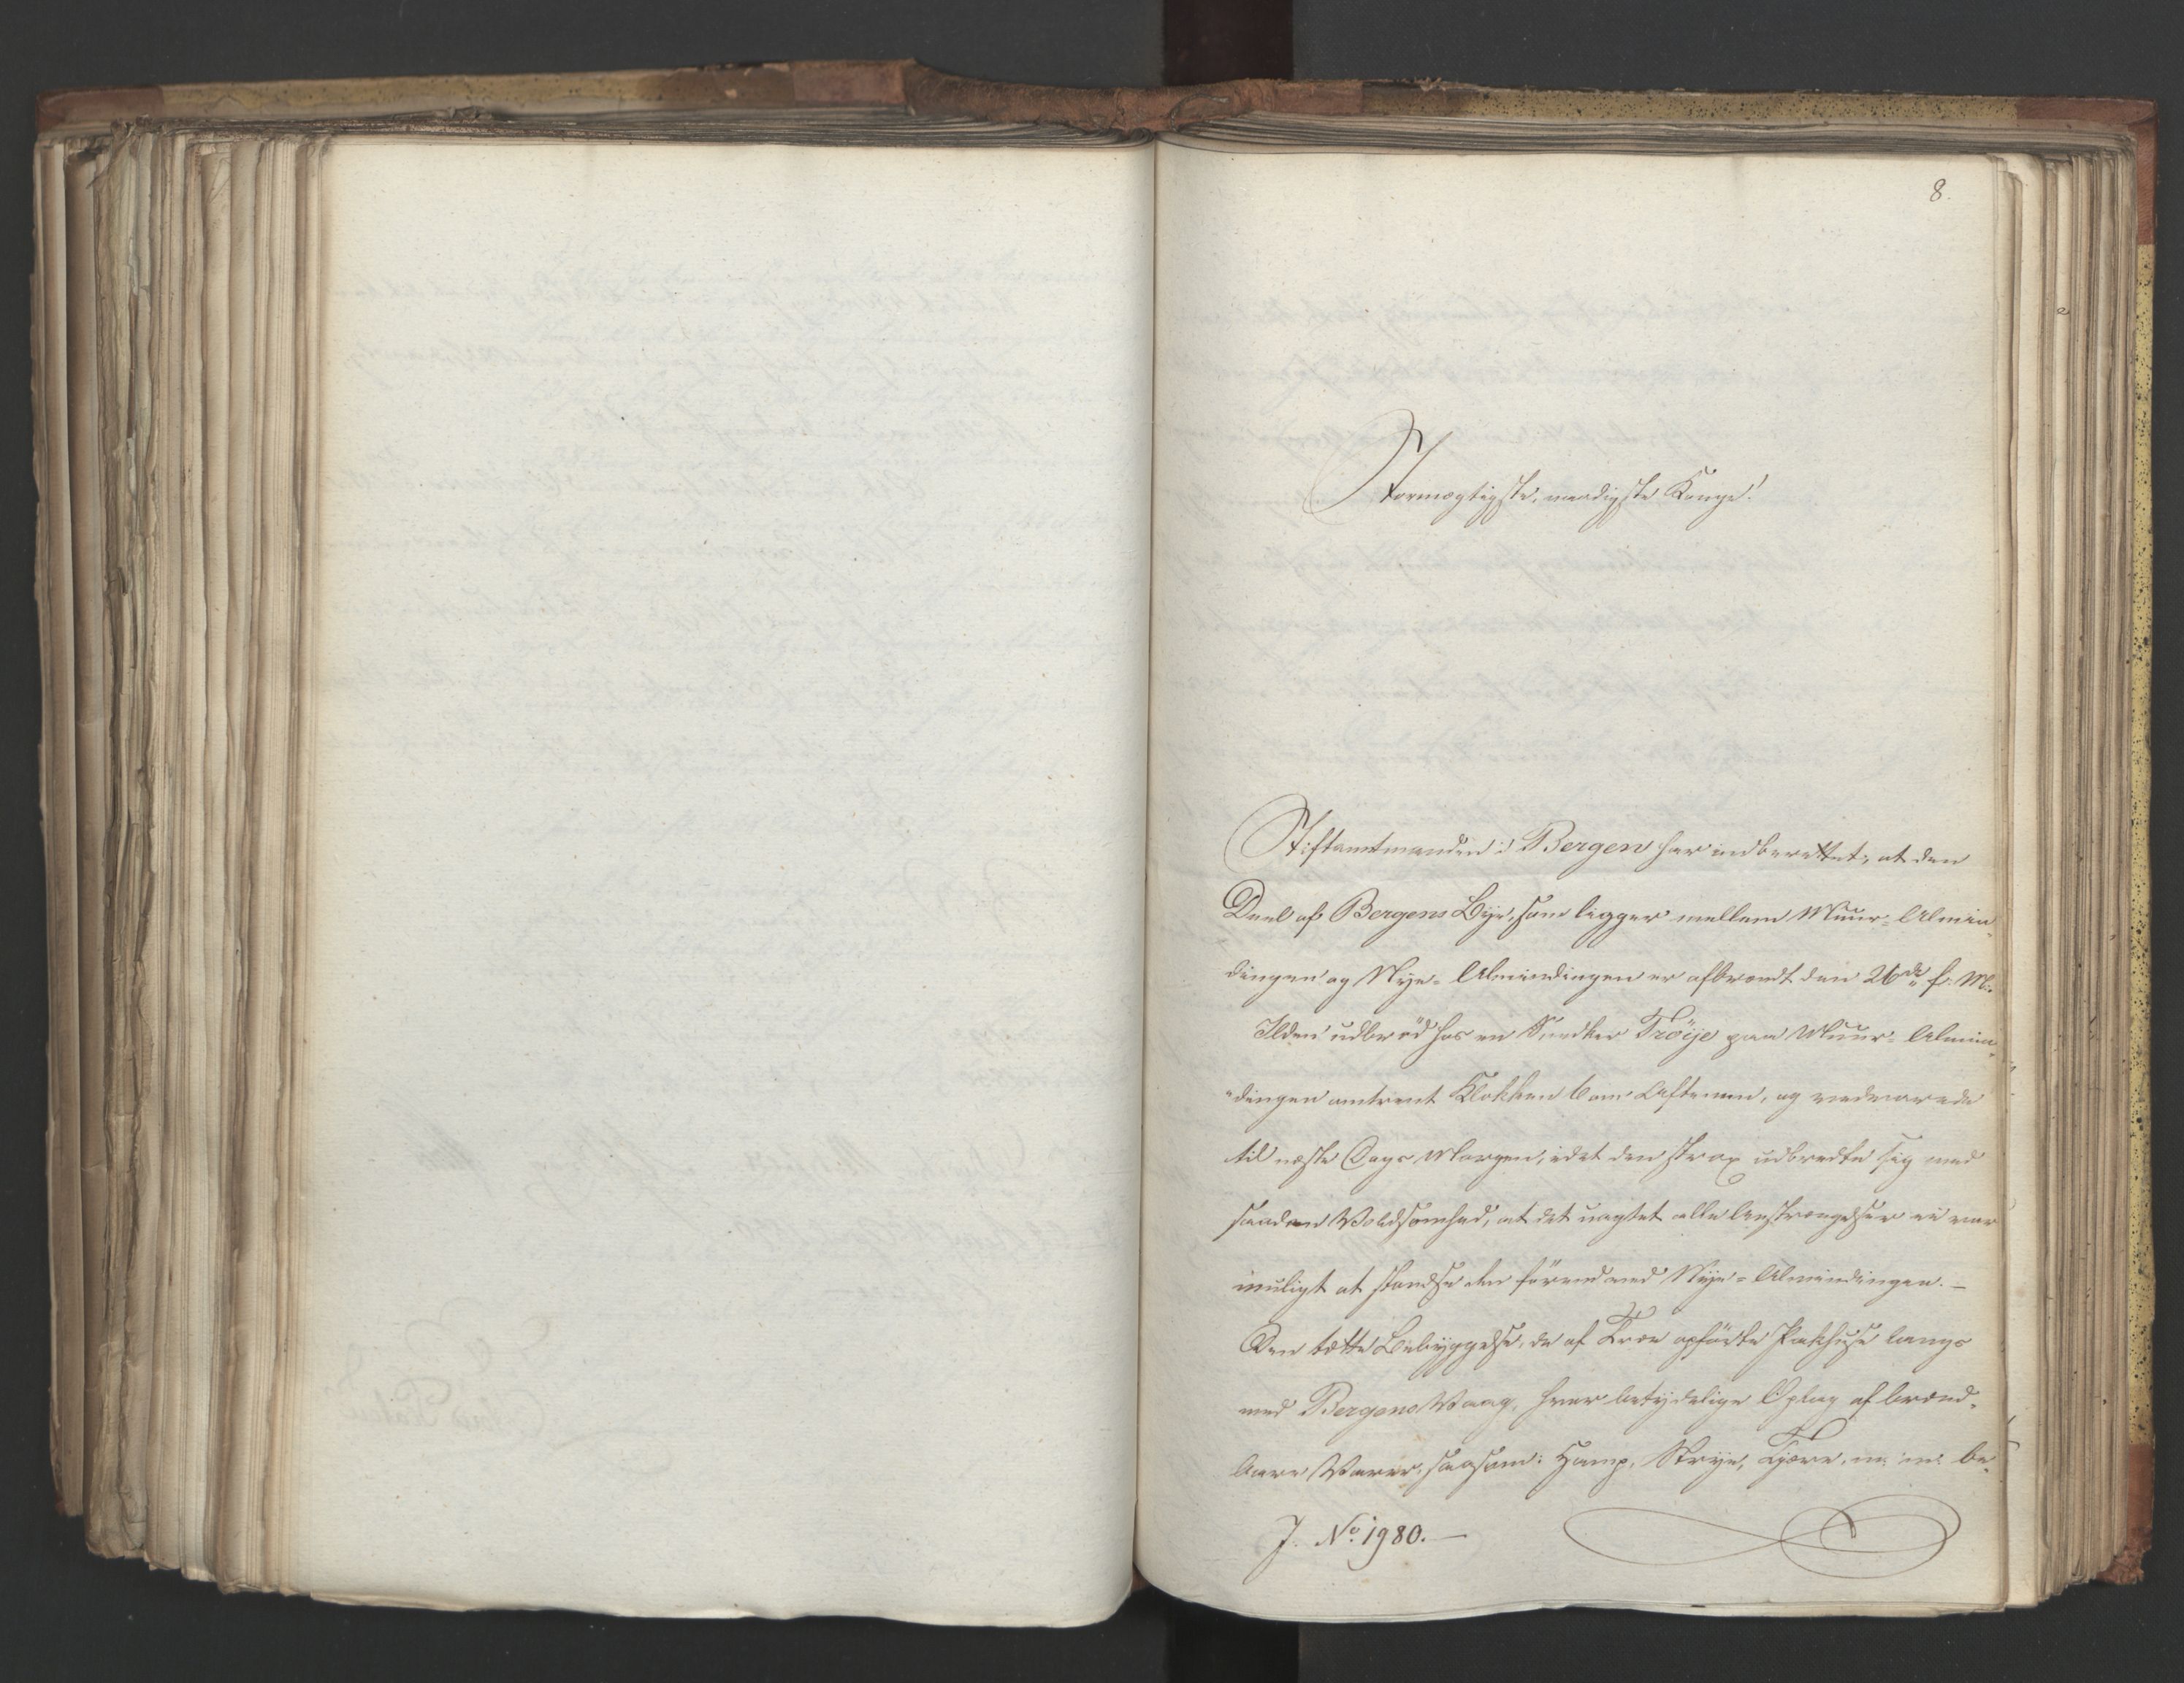 8.
Stormægtigste, naadigste Konge!
Stiftamtmanden i Bergen har indberettet, at den
Deel af Bergens Bye, som ligger mellem Muur-Almin-
dingen og Nye-Almindingen er afbrændt den 26de f. M.
Ilden udbrød hos en Snedker Tröije paa Muur-Almin-
"dingen omtrent Klokken 6 om Aftenen, og vedvarede
til næste Dags Morgen, idet den strax udbredte sig med
saadan Voldsomhed, at det uagtet alle Anstrængelser ei var
muligt at standse den förend ved Nye-Almindingen. —
Den tætte Bebyggelse, de af Træ opförte Pakhuse langs
med Bergens Vaag, hver betydelige Oplag af brænd-
bare Varer, saasom: Hamp, Strye, Tjære, m: m: be-
J. No. 1980. —